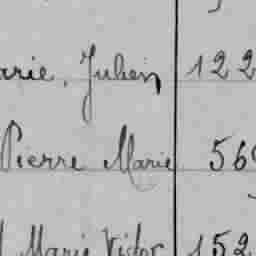 arie, Julien 122
Pierre Marie 56
Marie Victor 152